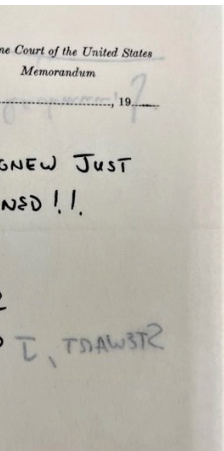 ne Court of the United States
Memorandum
, 19
GNEW JUST
NED!!.
STEWART, J